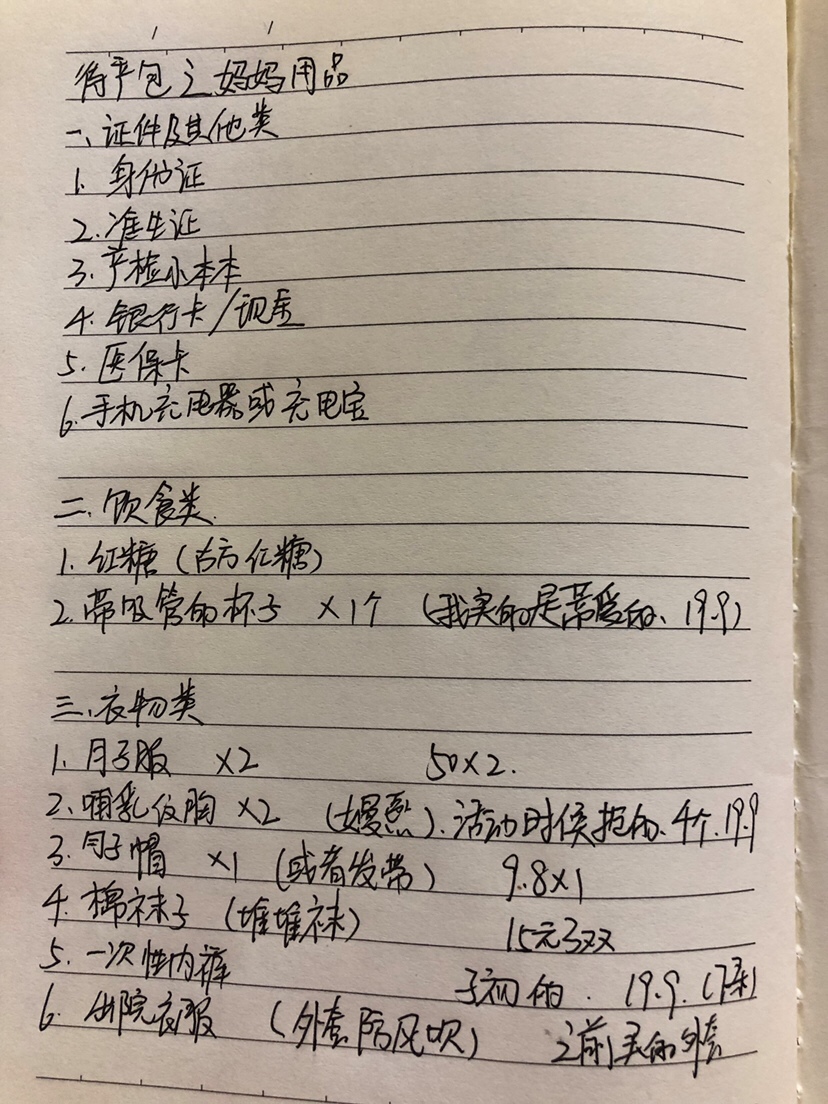 待产包之妈妈用品
一、证件及其他类
1. 身份证
2. 准生证
3. 产检小本本
4. 银行卡/现金
5. 医保卡
6. 手机充电器或充电宝
二、饮食类
1. 红糖（古方红糖）
2. 带吸管的杯子 ×1个 （我买的是蒂爱的、19.9）
三、衣物类
1. 月子服 ×2 50×2.
2. 哺乳文胸 ×2 （嫚熙）. 活动时候抢的. 4个. 19.9
3. 月子帽 ×1 （或者发带） 9.8×1
4. 棉袜子 （堆堆袜） 15元3双
5. 一次性内裤 子初的. 19.9.
6. 出院衣服 （外套防风吹） 之前买的外套